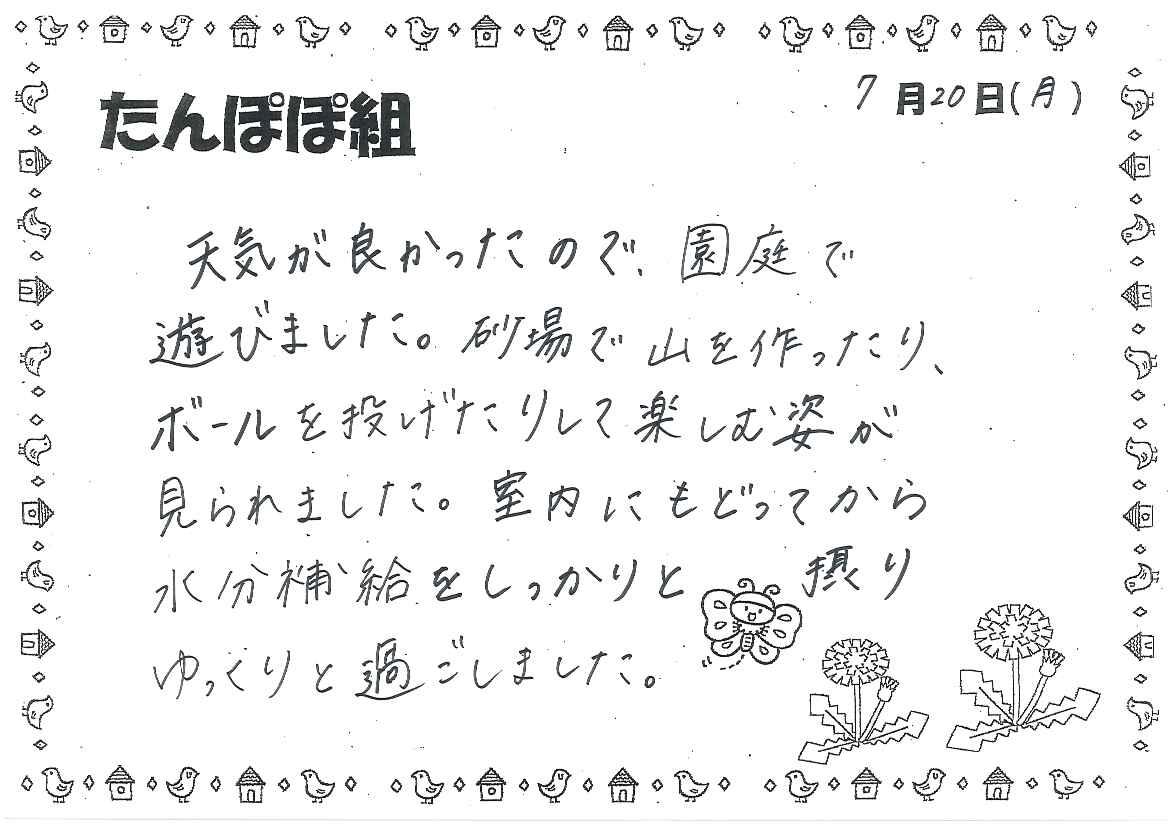 たんぽぽ組
7月20日(月)
天気が良かったので、園庭で
遊びました。砂場で山を作ったり、
ボールを投げたりして楽しむ姿が
見られました。室内にもどってから
水分補給をしっかりと摂り
ゆっくりと過ごしました。